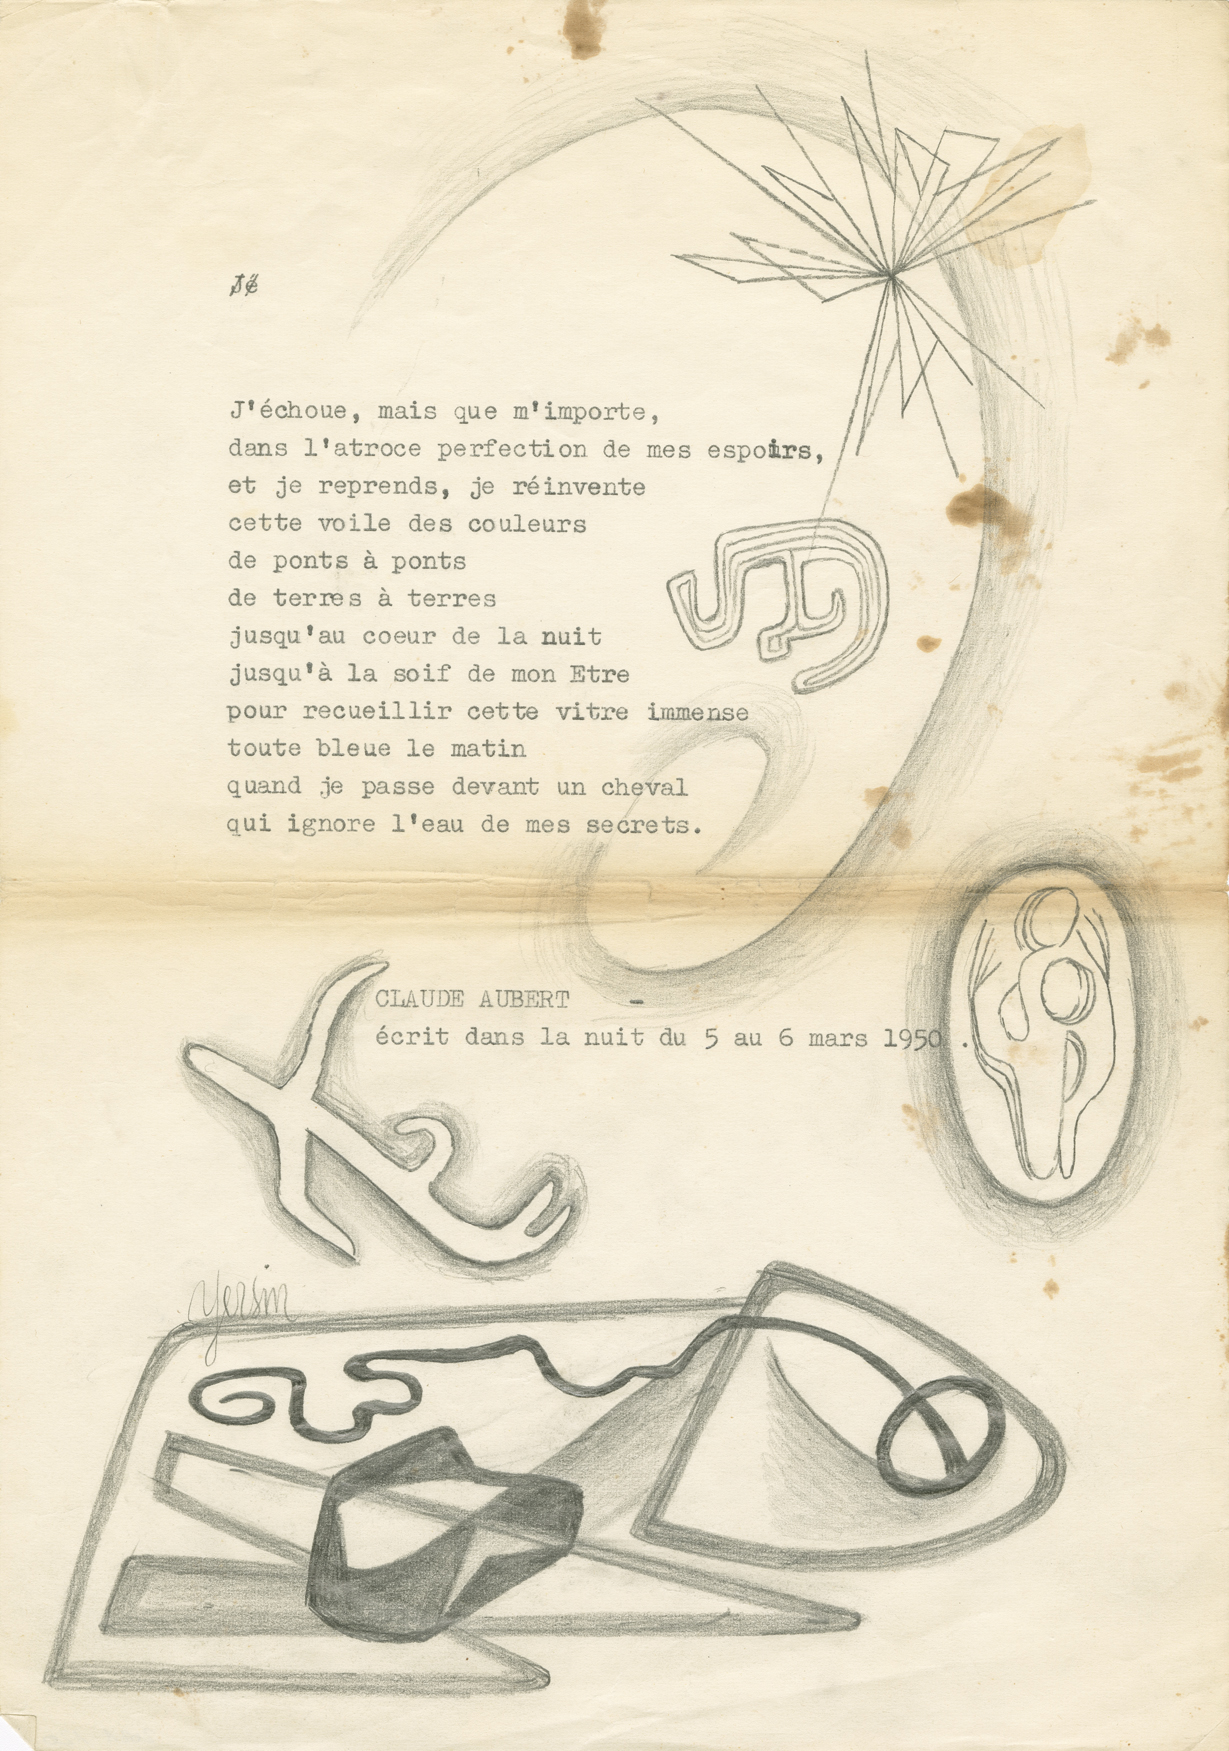 J'échoue, mais que m'importe,
dans l'atroce perfection de mes espoirs,
et je reprends, je réinvente
cette voile des couleurs
de ponts à ponts
de terres à terres
jusqu'au coeur de la nuit
jusqu'à la soif de mon Etre
pour recueillir cette vitre immense
toute bleue le matin
quand je passe devant un cheval
qui ignore l'eau de mes secrets.
CLAUDE AUBERT -
écrit dans la nuit du 5 au 6 mars 1950 .
Yersin